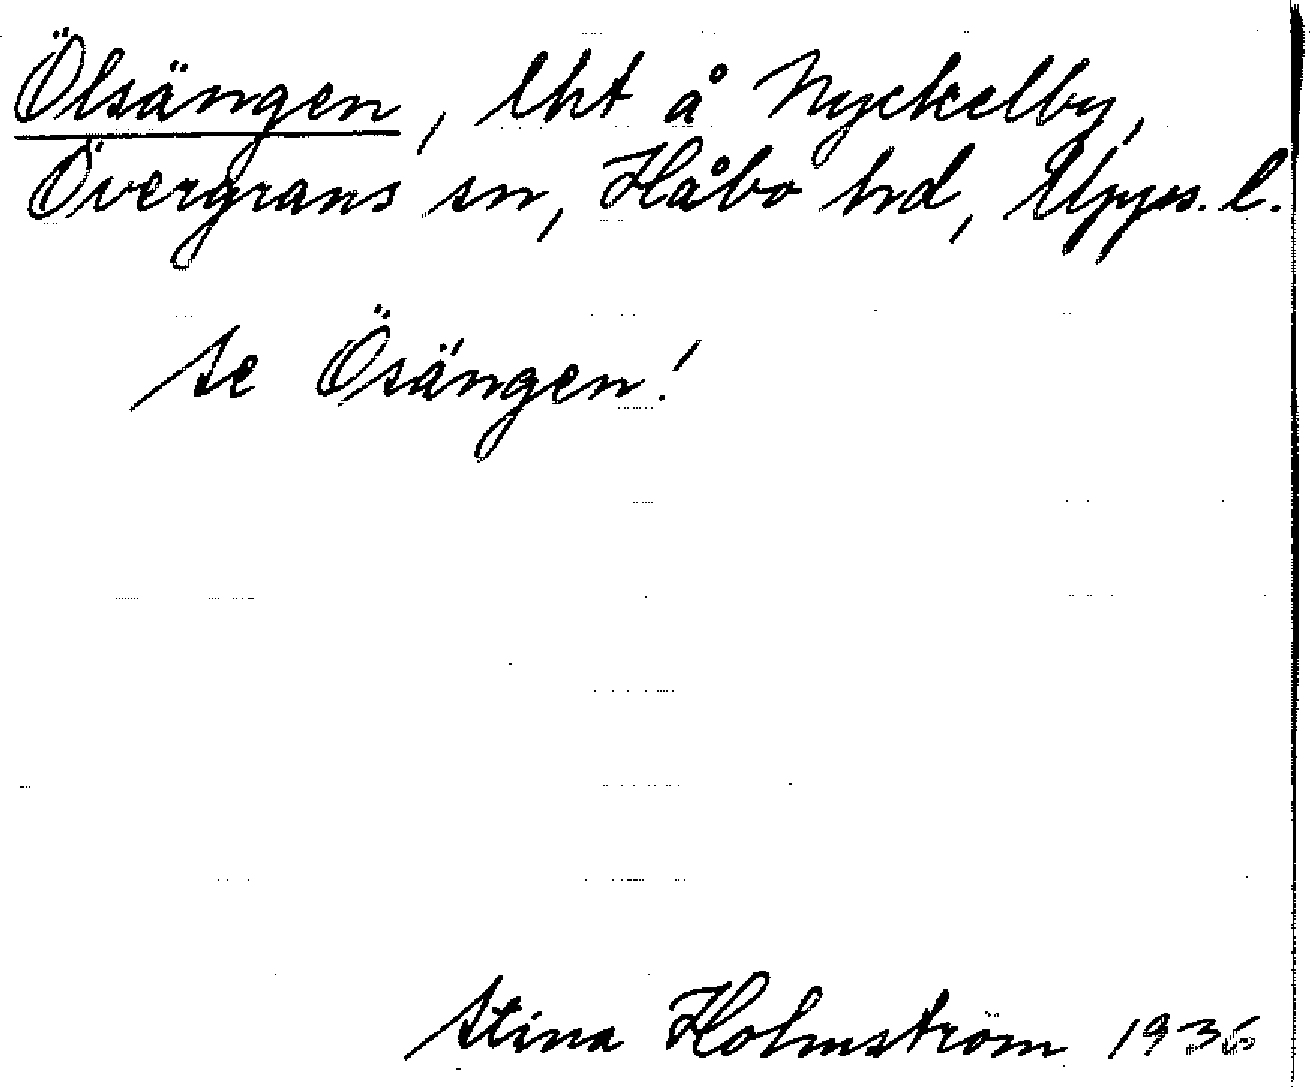 Ölsängen, lht å Nyckelby,
Övergrans sn, Håbo hd, Upps. l.
se Ösängen!
Stina Holmström 1936